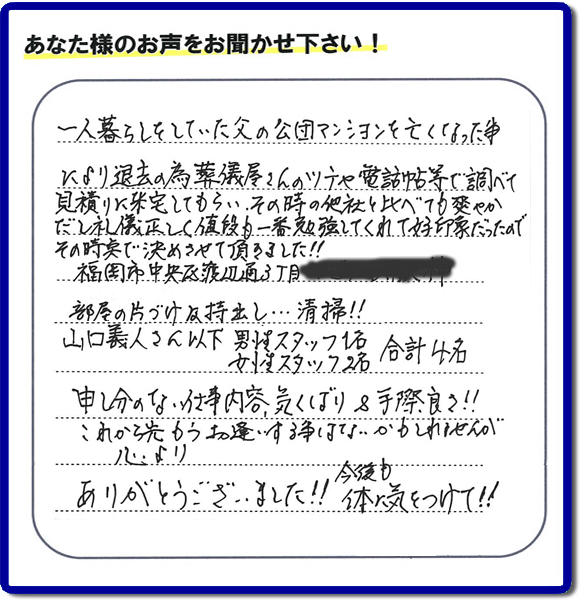 あなた様のお声をお聞かせ下さい！
一人暮らしをしていた父の公団マンションを亡くなった事
により退去の為葬儀屋さんのツテや電話帖等で調べて
見積りに来宅してもらい、その時の他社と比べても爽やか
だし礼儀正しく値段も一番勉強してくれて好印象だったので
その時点で決めさせて頂きました!!
福岡市中央区渡辺通3丁目
部屋の片づけ及持出し…清掃!!
山口義人さん以下 男性スタッフ1名
女性スタッフ2名 合計4名
申し分のない仕事内容、気くばり & 手際良さ!!
これから先もうお逢いする事はないかもしれませんが
心より
ありがとうございました!! 今後も
体に気をつけて!!